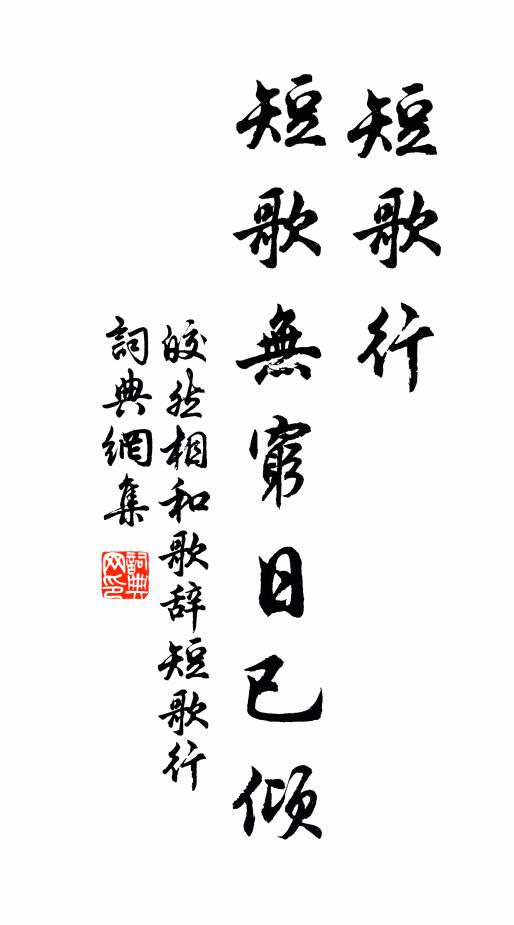 短歌行
短歌無窮日已傾
皎然相和歌辞短歌行
詞典網集
詞典网印